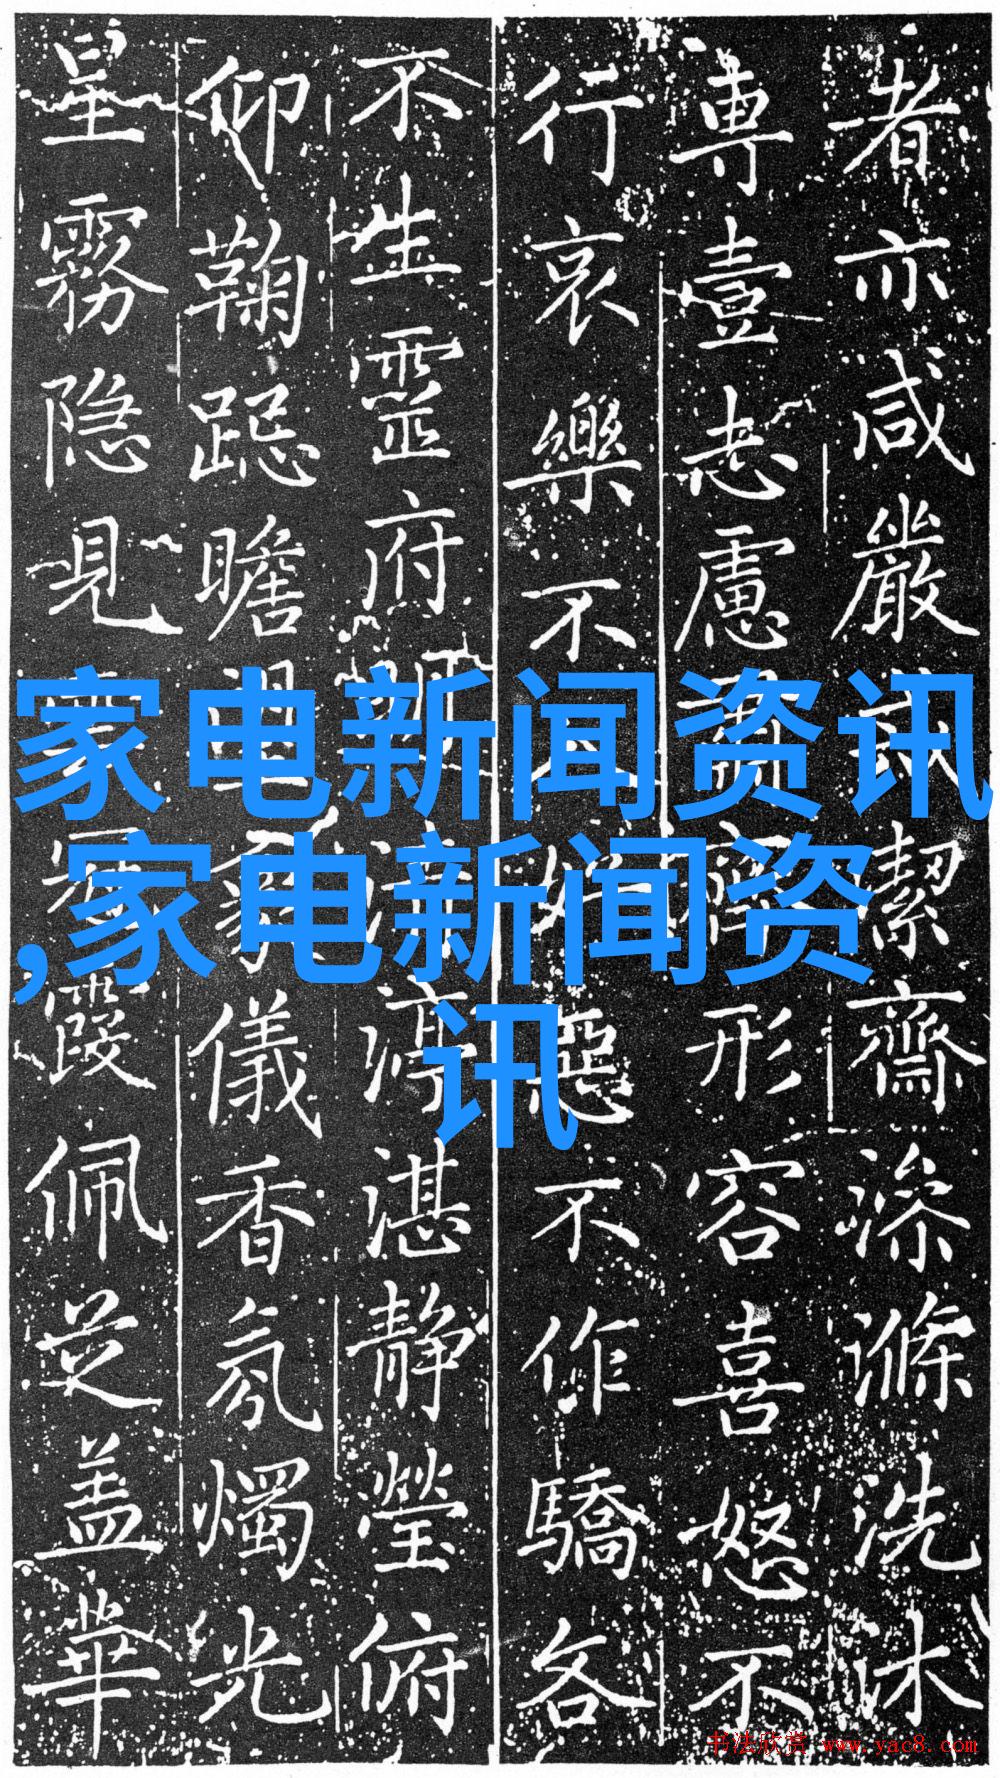 者亦咸嚴潔齋澡滌洗沐
専壹志慮齊形容喜怒不
行哀樂不入好惡不作驕各
不生靈府清渟湛静瑩俯
仰鞠跽瞻儀香氛燭光
星霧隐見雲霞佩芝盖華
家电新闻资讯
,家电新闻资
讯
书法欣赏 www.yac8.com